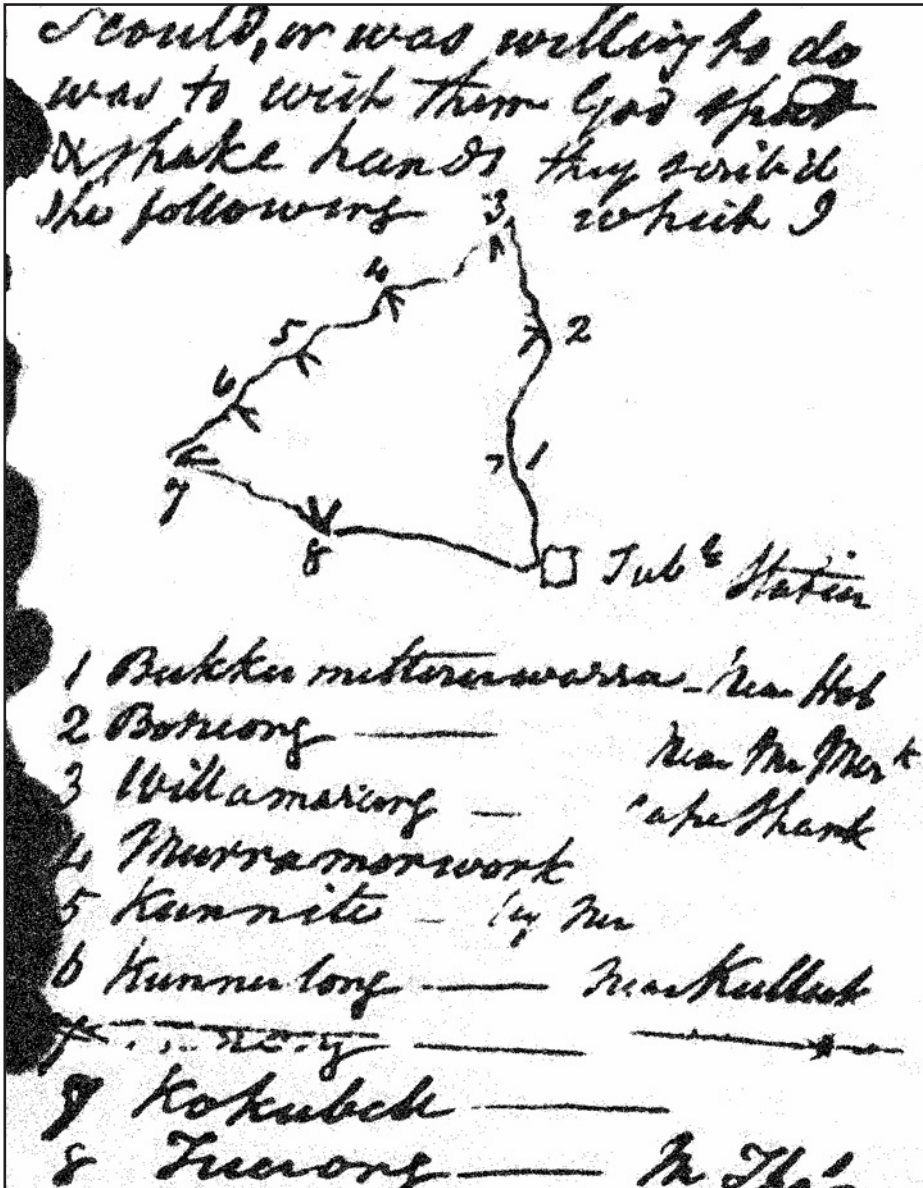 I could, or was willing to do
was to wish them God speed
& shake hands they scrib'd
the following which I
3
4
2
5
6
1
7
8
Tub^g Station
1 Bukker mitterwarra - near Hob
2 Boneong — near Mr Mer^k
3 Willamarang — Cape Shank
4 Murramorwork
5 Kunnite -
6 Kunnerlong — near Kulluck
7 Kokubele —
8 Tuerong — Mr Tho^s